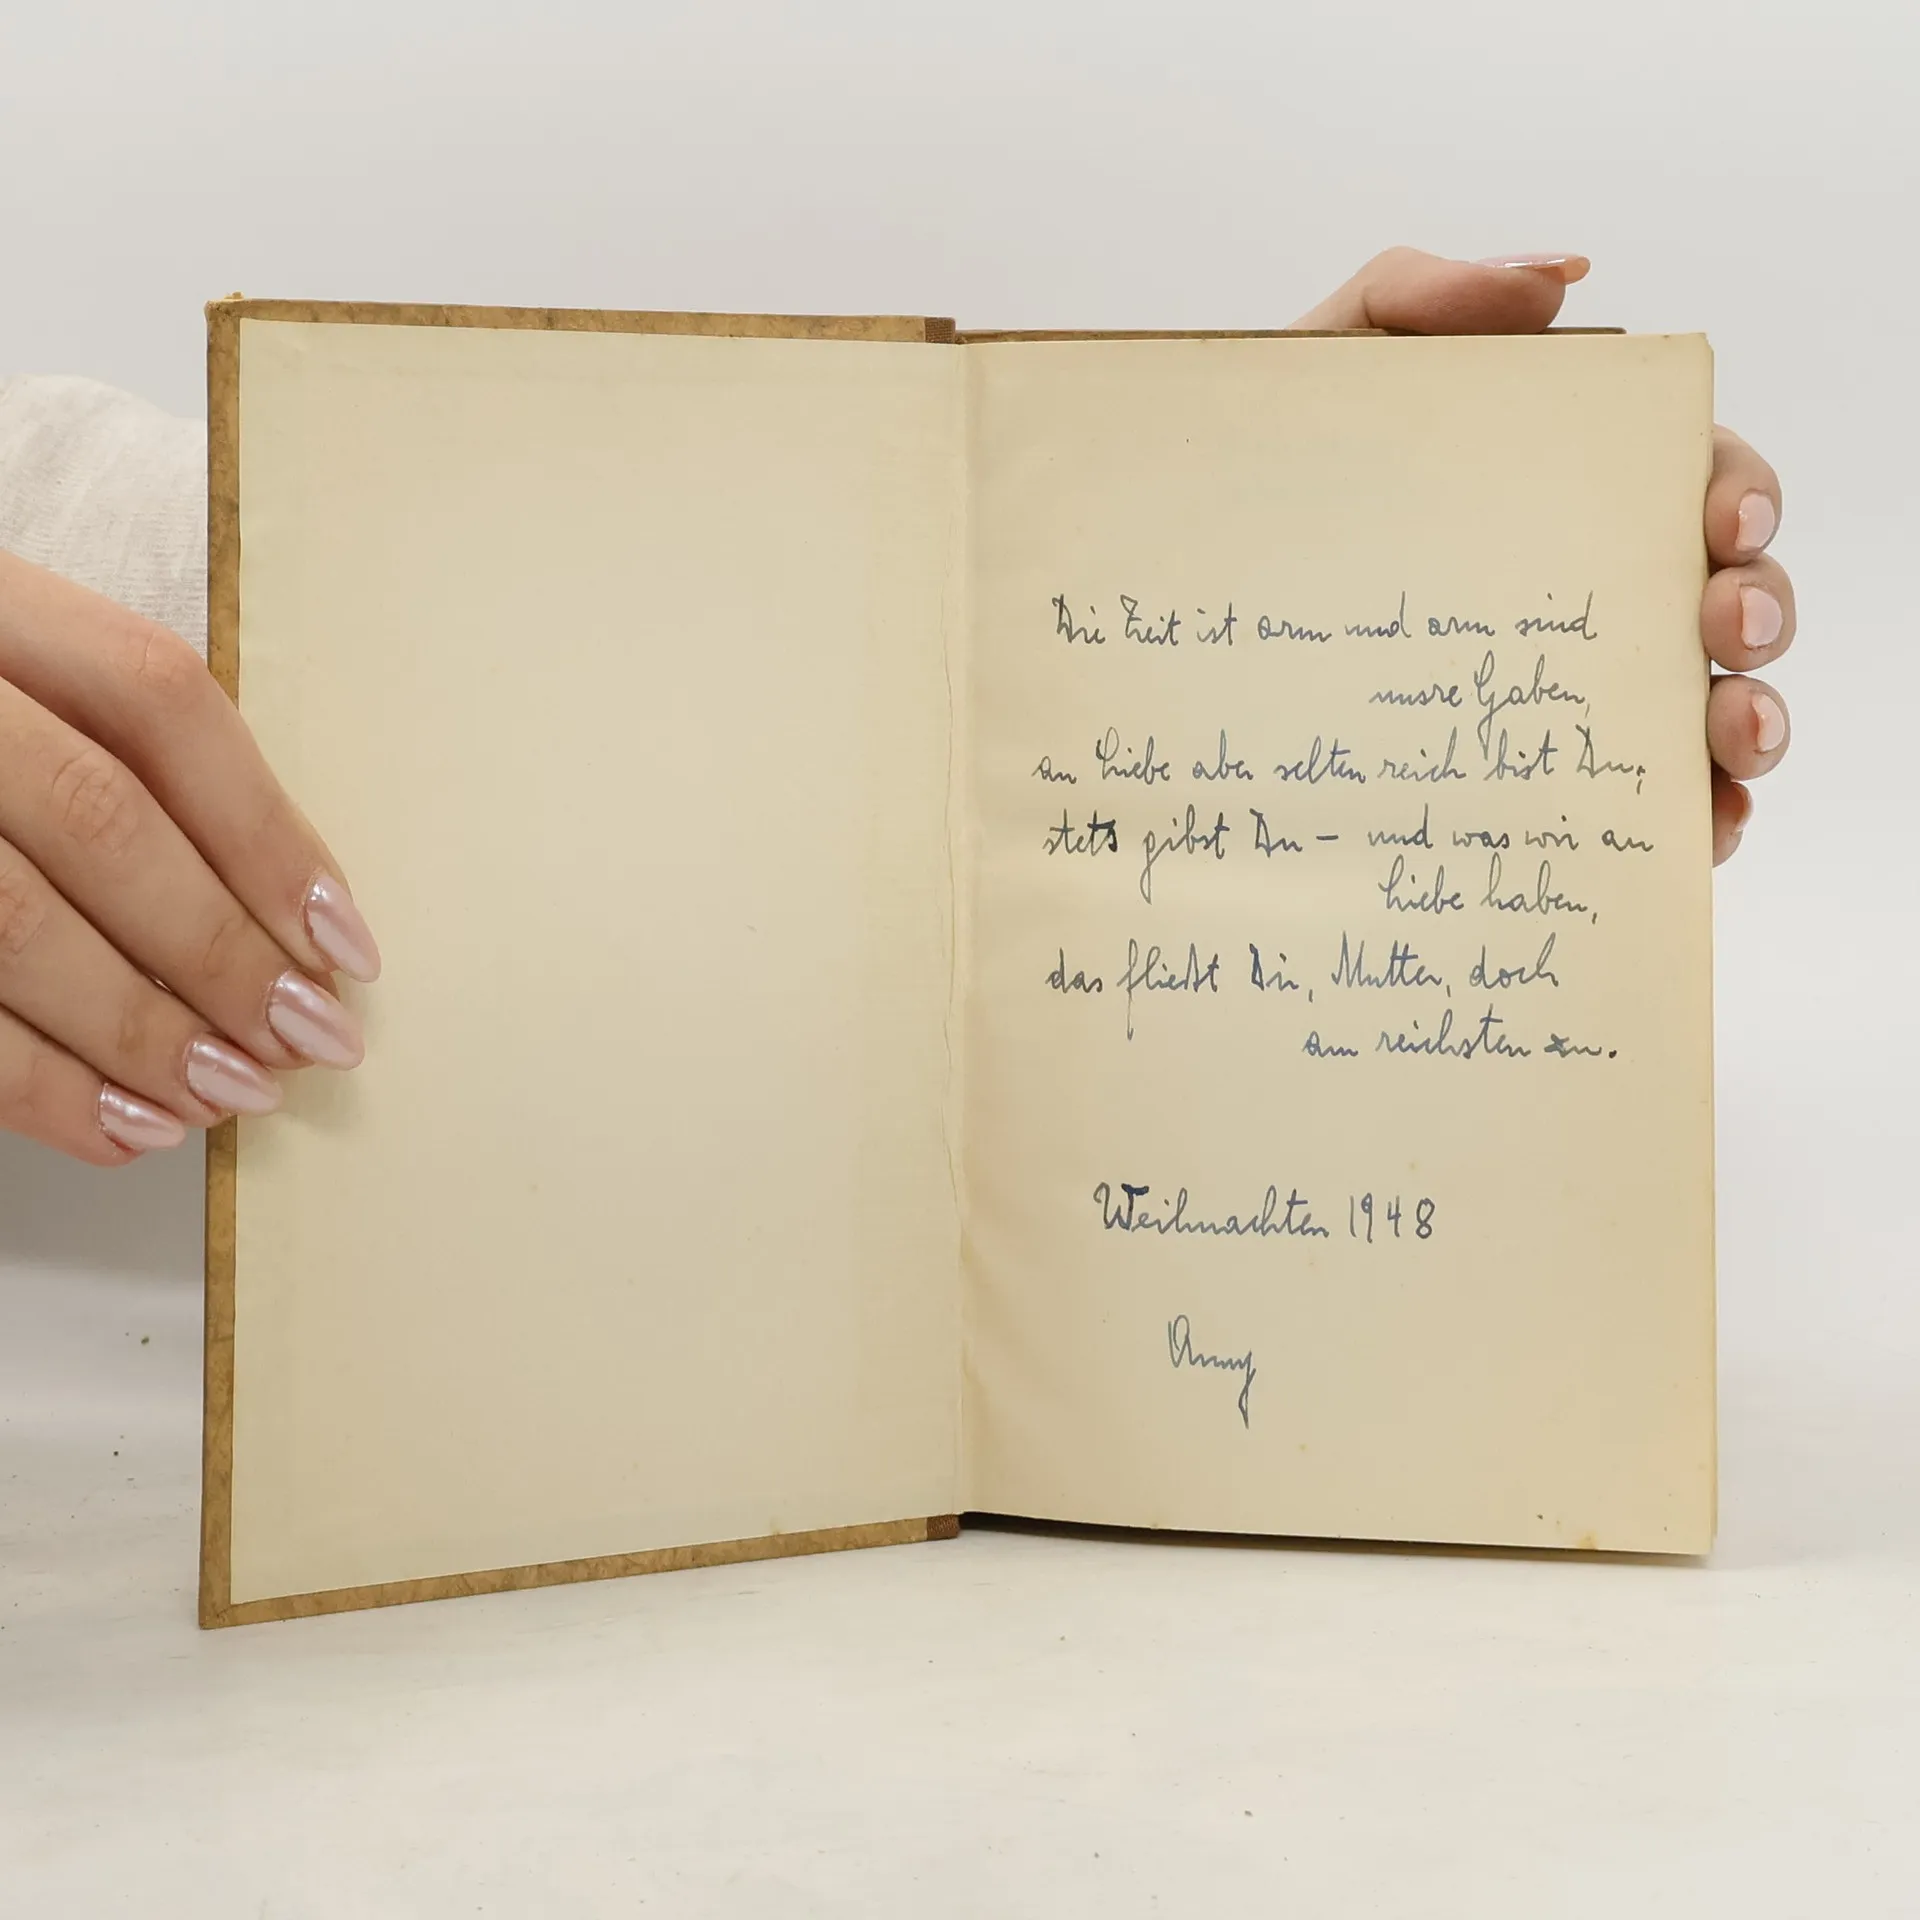 Die Zeit ist arm und arm sind
unsre Gaben,
an Liebe aber selten reich bist Du;
stets gibst Du – und was wir an
Liebe haben,
das fließt Dir, Mutter, doch
am reichsten zu.
Weihnachten 1948
Anny